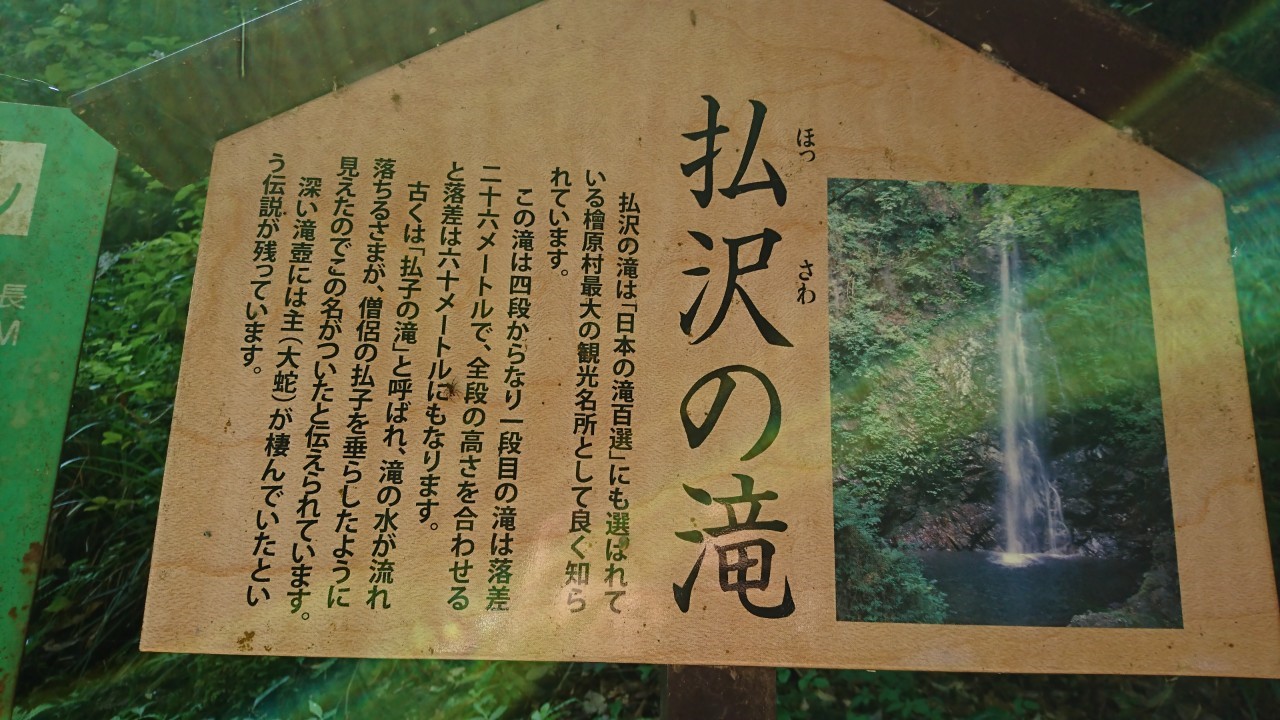 払沢の滝
ほっ
さわ
払沢の滝は「日本の滝百選」にも選ばれて
いる檜原村最大の観光名所として良く知ら
れています。
この滝は四段からなり一段目の滝は落差
二十六メートルで、全段の高さを合わせる
と落差は六十メートルにもなります。
古くは「払子の滝」と呼ばれ、滝の水が流れ
落ちるさまが、僧侶の払子を垂らしたように
見えたのでこの名がついたと伝えられています。
深い滝壺には主（大蛇）が棲んでいたとい
う伝説が残っています。
長
M